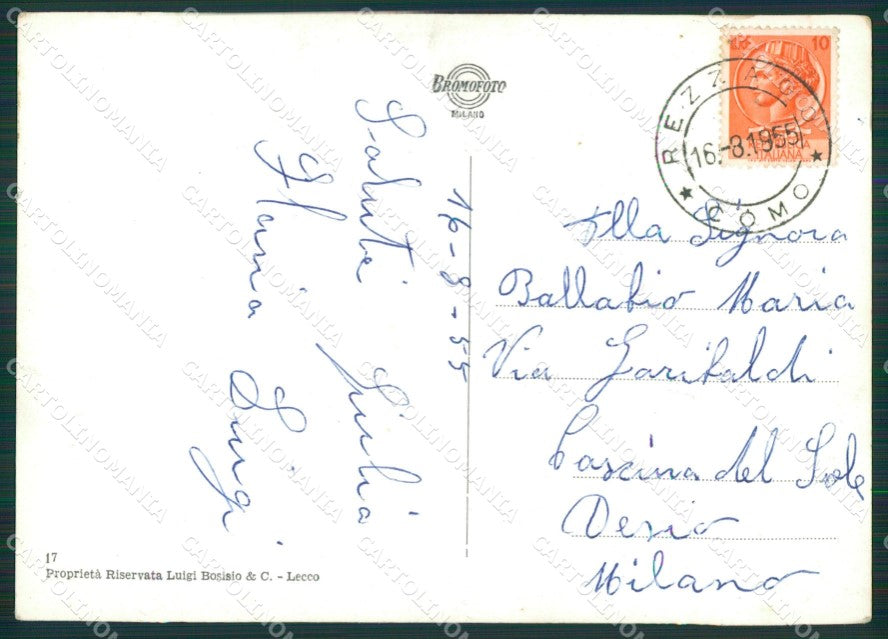 BROMOFOTO
MILANO
10
REZZAGO
16.-8.1955
COMO
ITALIANA
16-8-55
Saluti Giulia
Maria Luigi
Alla Signora
Ballabio Maria
Via Garibaldi
Cascina del Sole
Desio
Milano
17
Proprietà Riservata Luigi Bosisio & C. - Lecco
CARTOLINOMANIA